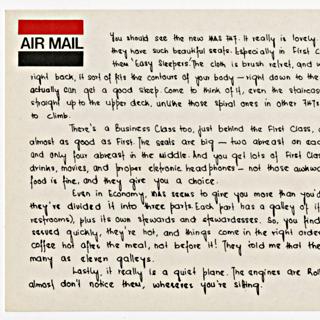 AIR MAIL
You should see the new MAS 747. It really is lovely.
they have such beautiful seats. Especially in First C
them 'Easy Sleepers'. The cloth is brush velvet, and w
right back, it sort of fits the contours of your body — right down to the
actually can get a good sleep. Come to think of it, even the staircas
straight up to the upper deck, unlike those spiral ones in other 747s
to climb.
There's a Business Class too, just behind the First Class, a
almost as good as First. The seats are big — two abreast on eac
and only four abreast in the middle. And you get lots of First Clas
drinks, movies, and proper eletronic headphones — not those awkwa
food is fine, and they give you a choice.
Even in Economy, MAS seems to give you more than you'd
they've divided it into three parts. Each part has a galley of it
restrooms), plus its own stewards and stewardesses. So, you find
served quickly, they're hot, and things come in the right order
coffee hot after the meal, not before it! They told me that the
many as eleven galleys.
Lastly, it really is a quiet plane. The engines are Rol
almost don't notice them, wherever you're sitting.